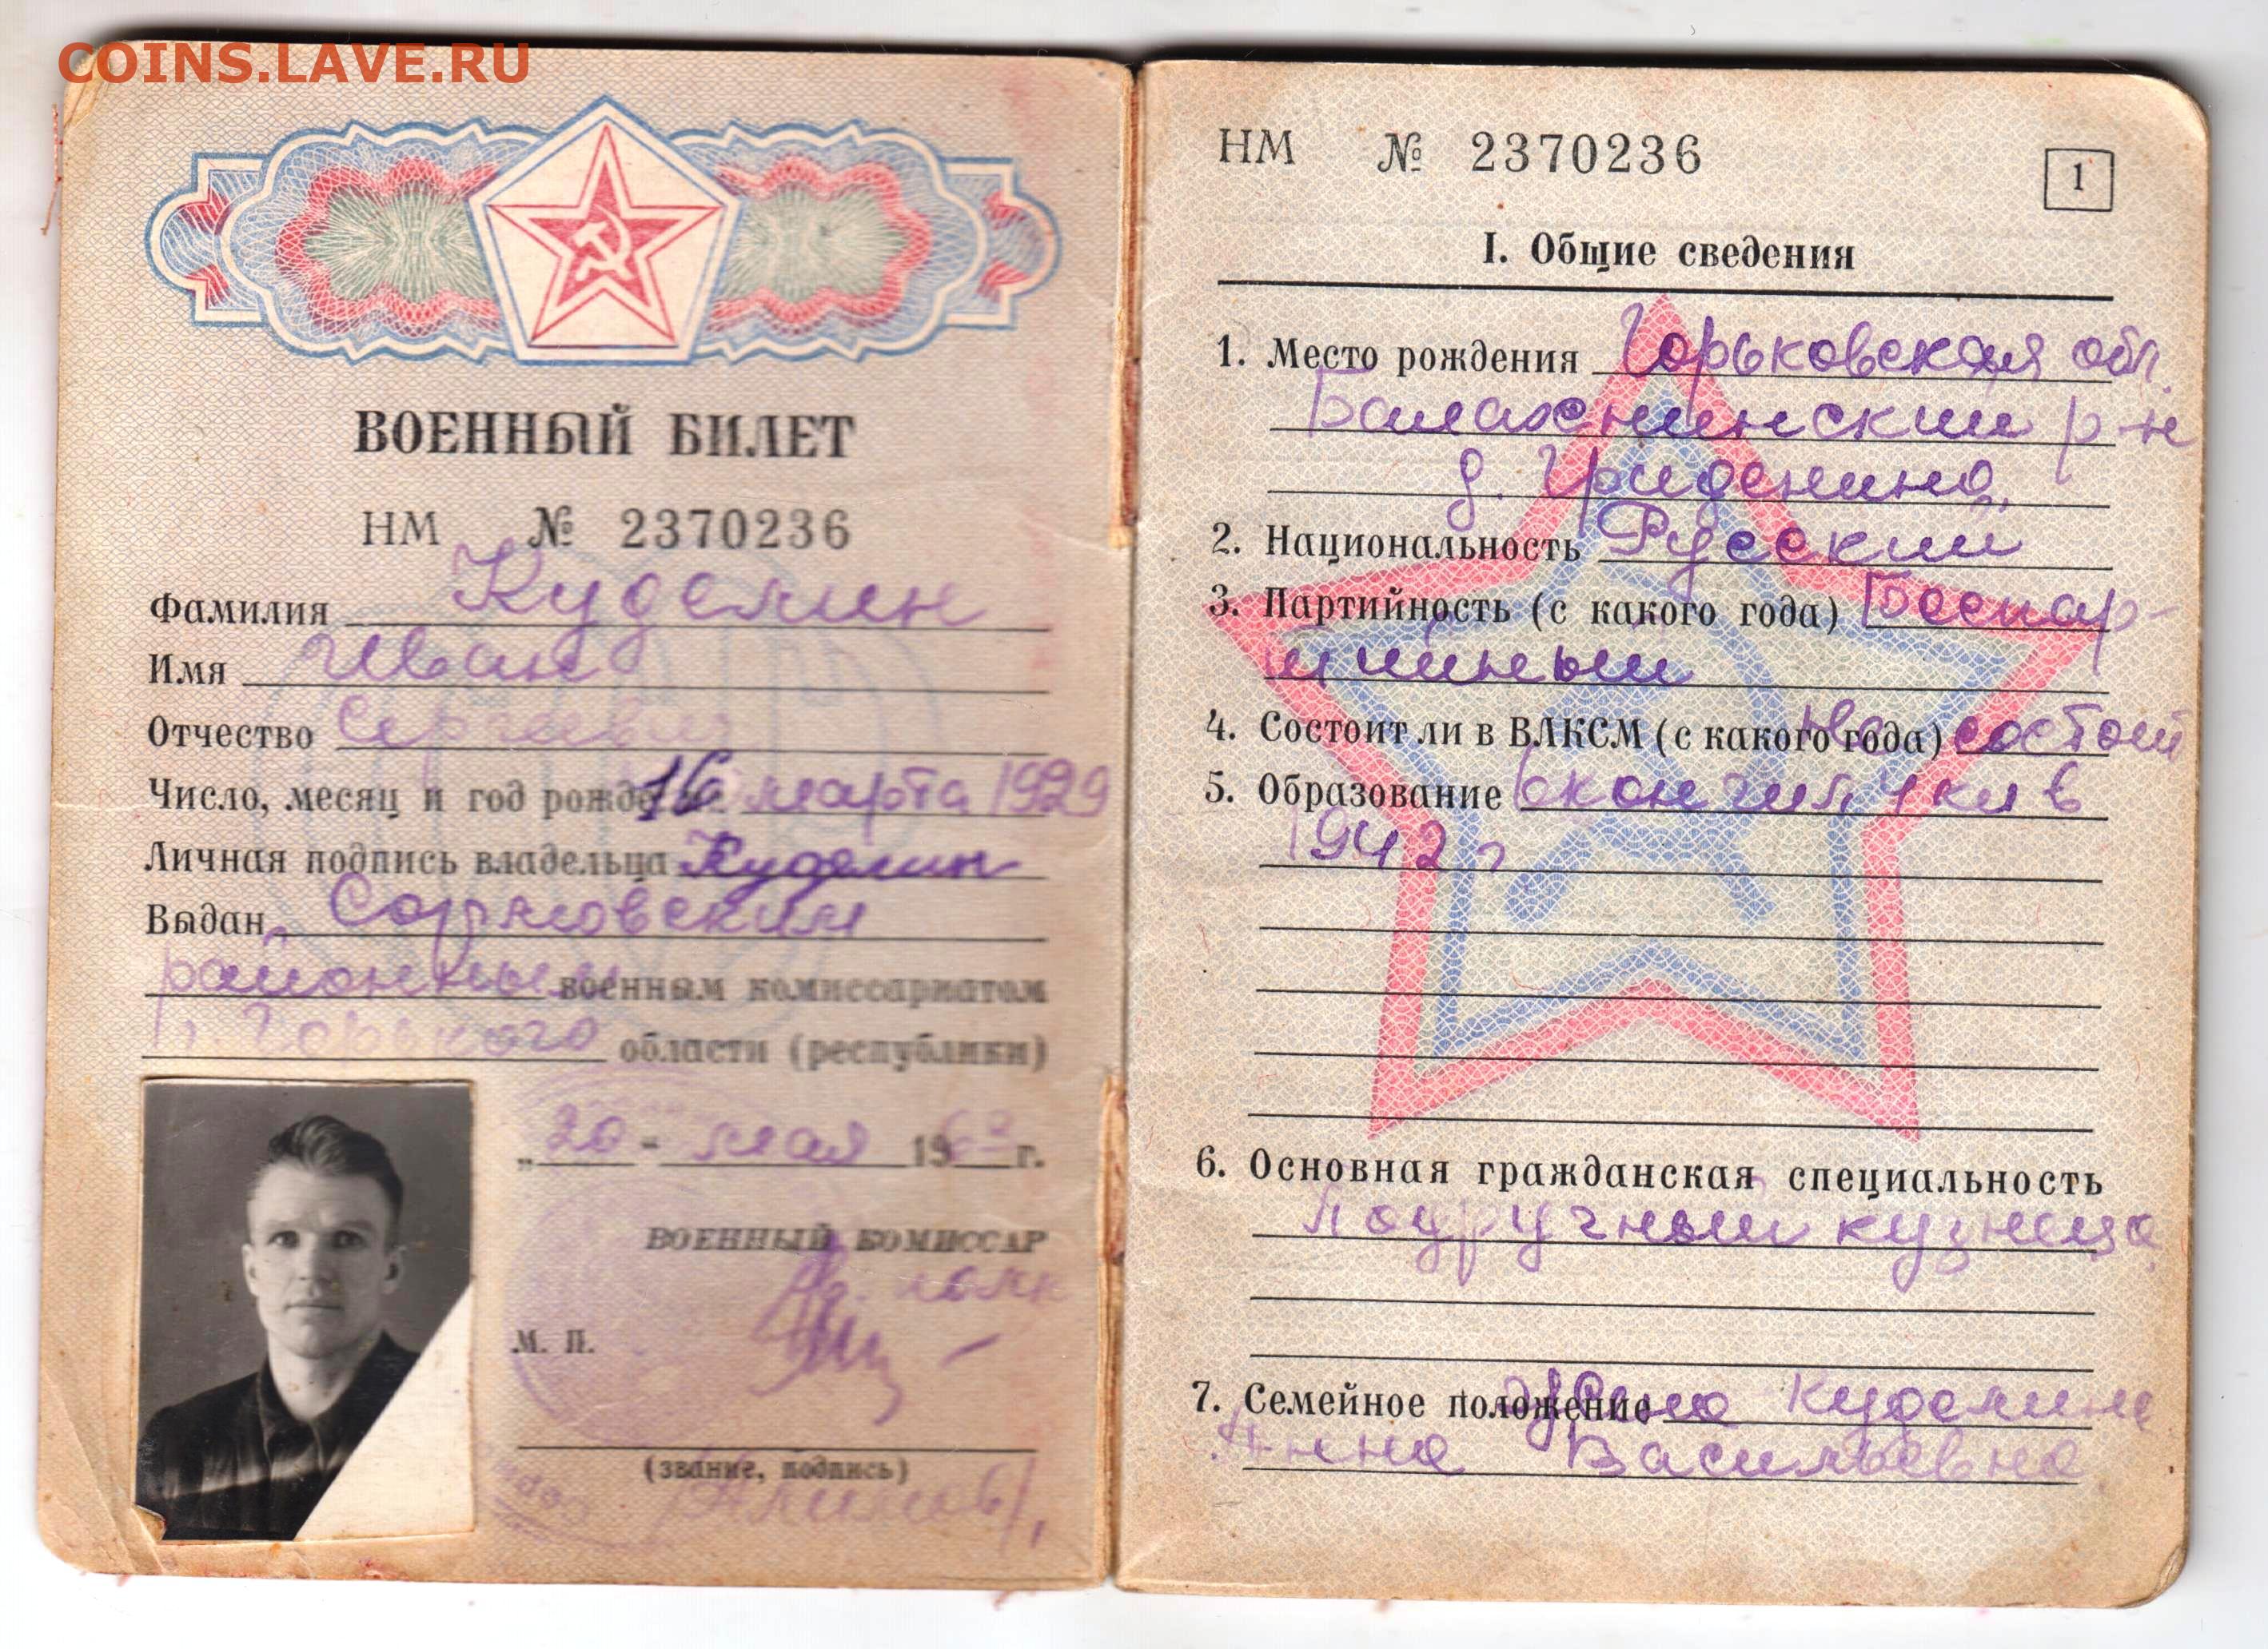 COINS.LAVE.RU
ВОЕННЫЙ БИЛЕТ
НМ № 2370236
Фамилия Куделин
Имя Иван
Отчество Сергеевич
Число, месяц и год рожде 16 марта 1929
Личная подпись владельца Куделин
Выдан Сормовским
районным военным комиссариатом
г. Горького области (республики)
„20 - мая 1963 г.
ВОЕННЫЙ КОМИССАР
М. П.
(звание, подпись)
НМ № 2370236
1
I. Общие сведения
1. Место рождения Горьковская обл.
Балахнинский р-н
д. Гриденино,
2. Национальность Русский
3. Партийность (с какого года) Беспар-
тийный
4. Состоит ли в ВЛКСМ (с какого года) не состоит
5. Образование окончил в
1942 г
6. Основная гражданская специальность
Подручный кузнеца
7. Семейное положение жена Куделина
Анна Васильевна